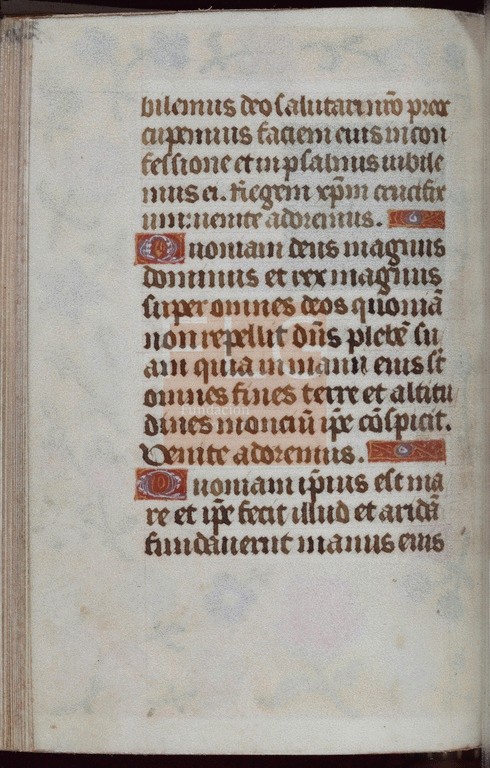 bilemus deo salutari nr̄o preoc
cupemus faciem eius in con
fessione et in psalmis iubile
mus ei. Regem xp̄m crucifix
um: uenite adoremus.
Quoniam deus magnus
dominus et rex magnus
super omnes deos quoniā
non repellit dn̄s plebē su
am quia in manu eius st̄
omnes fines terre et altitu
dines monciū ip̄e cōspicit.
Venite adoremus.
Quoniam ip̄ius est ma
re et ip̄e fecit illud et aridā
fundauerūt manus eius
Fundación